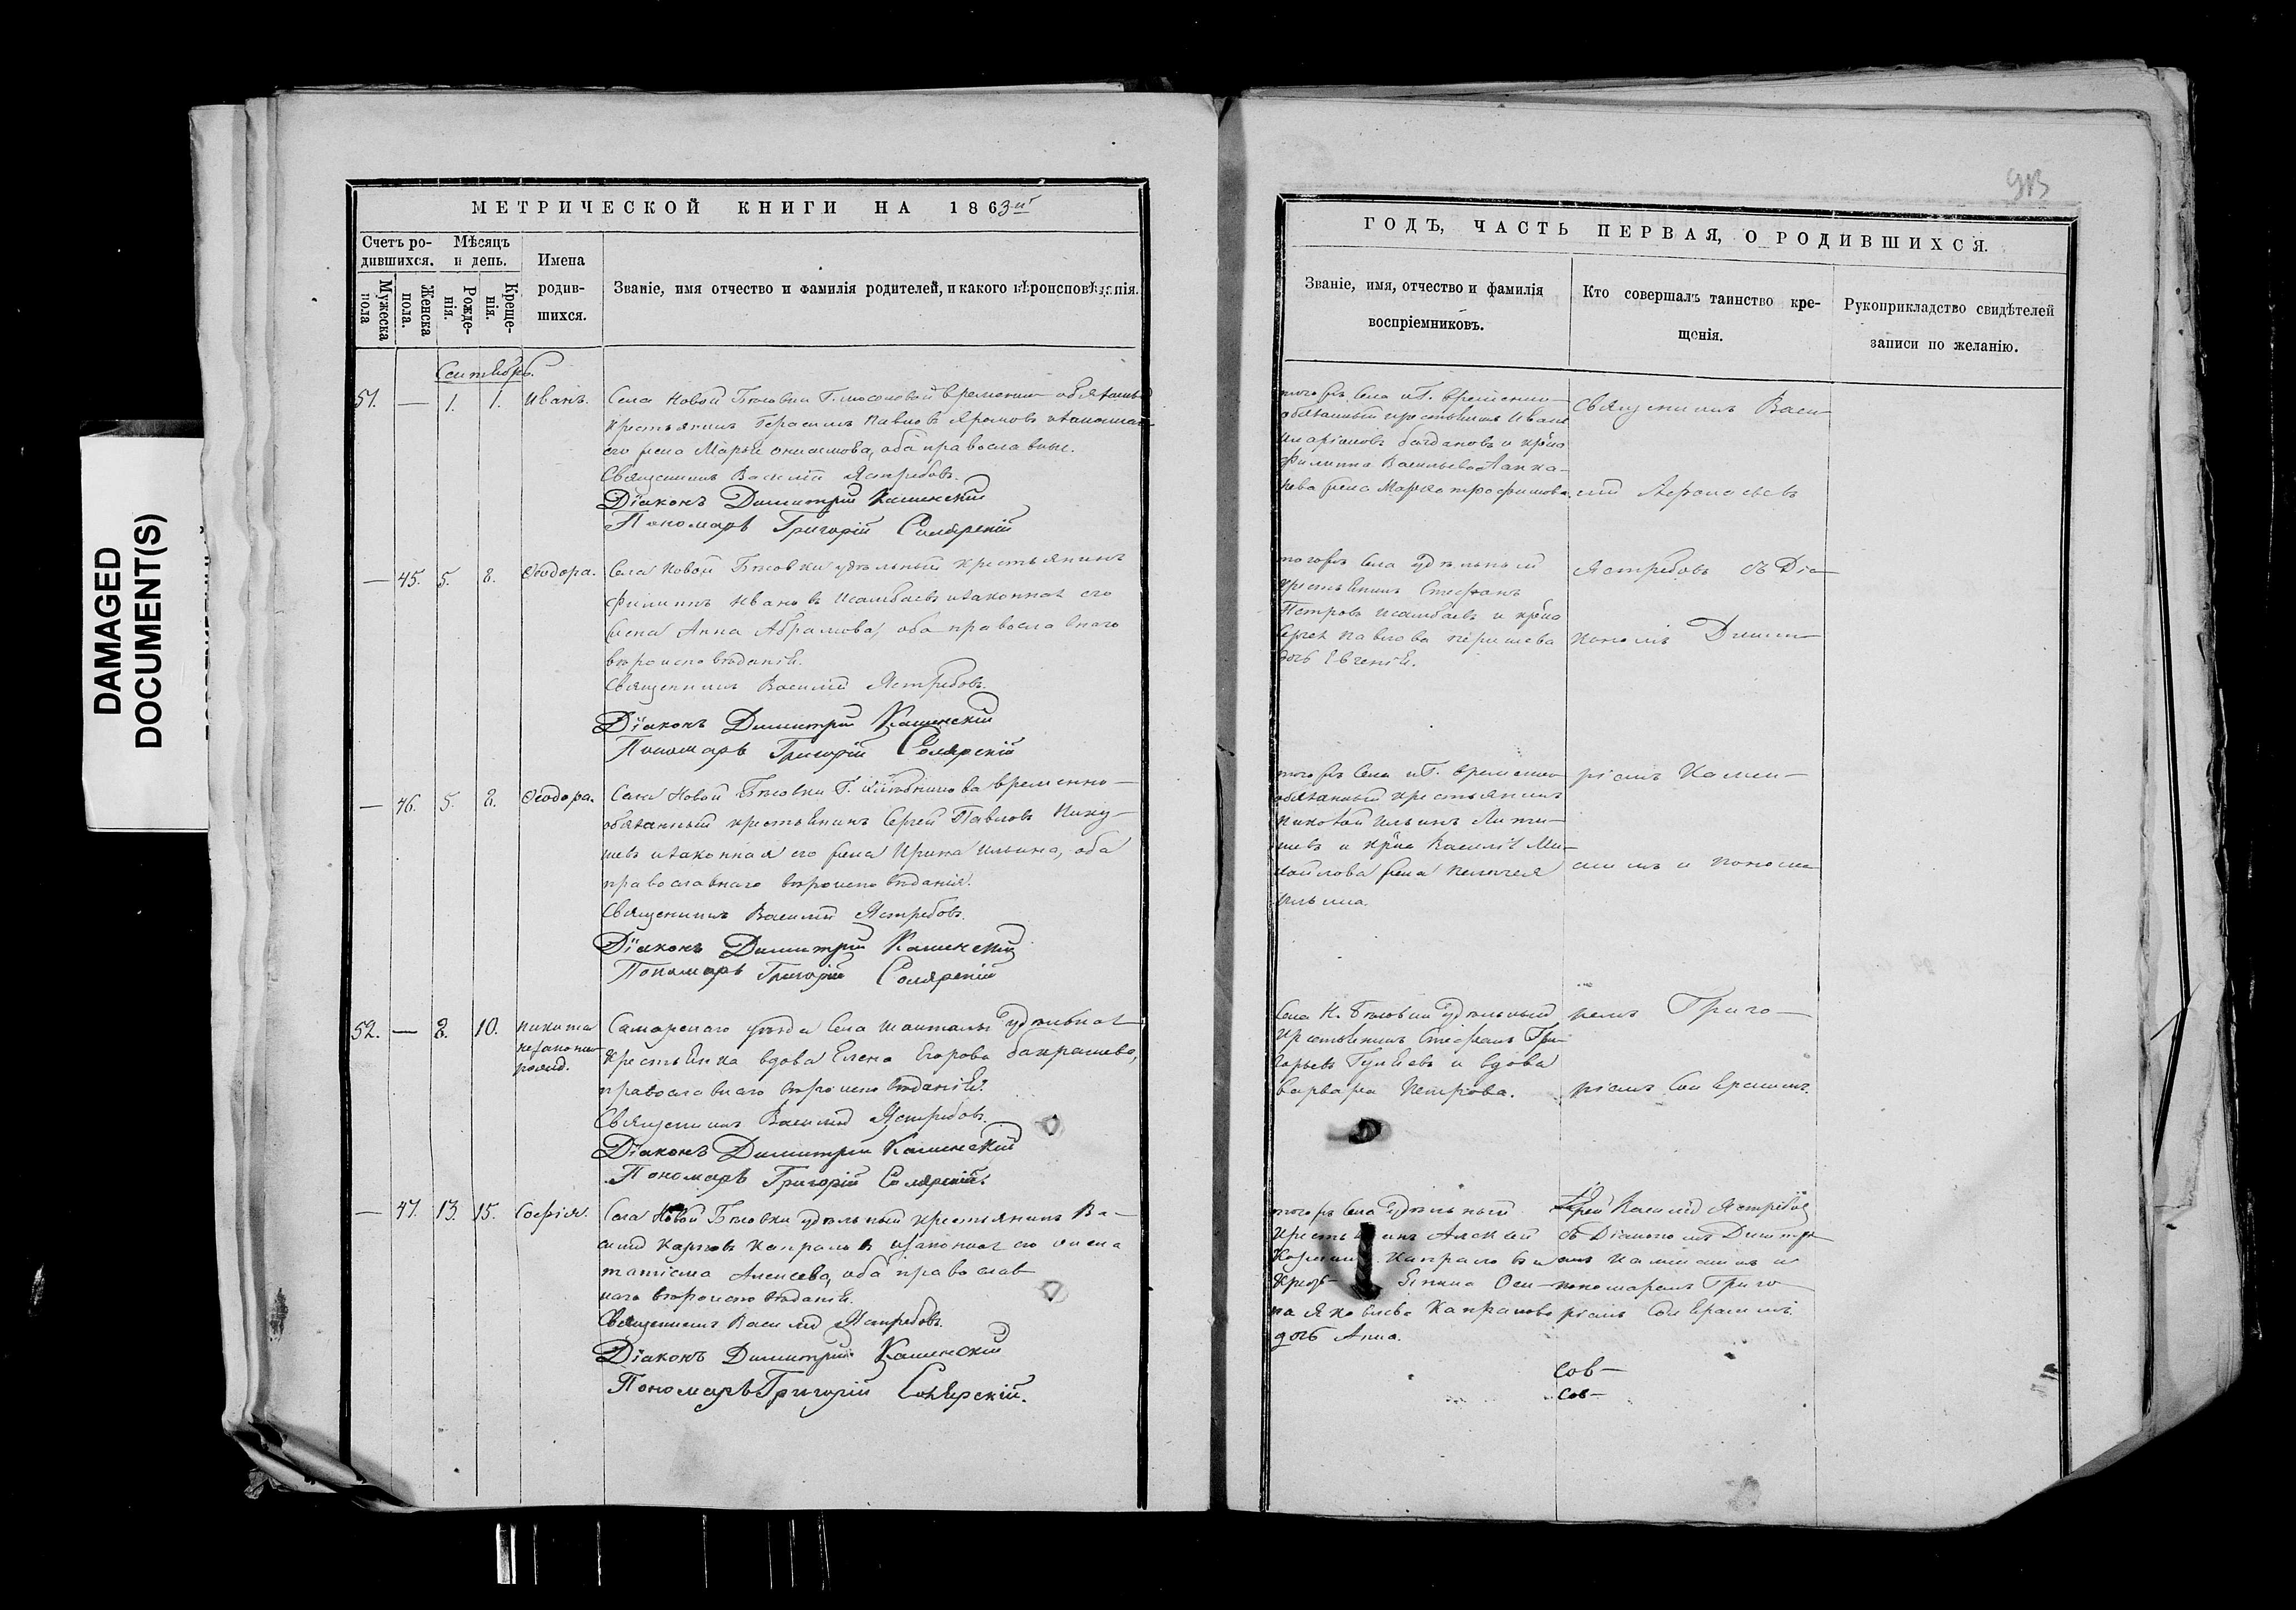 DAMAGED
DOCUMENT(S)
МЕТРИЧЕСКОЙ КНИГИ НА 1863й
Счетъ ро-
дившихся.
Мужеска
пола
Женска
пола.
Мѣсяцъ
и день.
Рожде-
нія.
Креще-
нія.
Имена
родив-
шихся.
Званіе, имя отчество и фамилія родителей, и какого вѣроисповѣданія.
Сентябрь.
51. — 1. 1. Иванъ.
Села Новой Бѣсовки Г. временно обязанный
крестьянинъ Герасимъ Павловъ и законная
его жена Марья Онисимова, оба православные.
Священникъ Василій Ястребовъ.
Діаконъ Димитрій Каменскій
Пономарь Григорій Солярскій
— 45. 5. 8. Ѳеодора.
Села Новой Бѣсовки удѣльный крестьянинъ
Филиппъ Ивановъ Исамбаевъ и законная его
жена Анна Абрамова, оба православнаго
вѣроисповѣданія.
Священникъ Василій Ястребовъ.
Діаконъ Димитрій Каменскій
Пономарь Григорій Солярскій
— 46. 5. 8. Ѳеодора.
Села Новой Бѣсовки Г. временно-
обязанный крестьянинъ Сергей Павловъ Пику-
шевъ и законная его жена Ирина Ильина, оба
православнаго вѣроисповѣданія.
Священникъ Василій Ястребовъ.
Діаконъ Димитрій Каменскій
Пономарь Григорій Солярскій
52. — 8. 10. Никита
незаконно-
рожд.
Самарскаго уѣзда Села Шантали удѣльная
крестьянка вдова Елена Егорова Бакрашева,
православнаго вѣроисповѣданія.
Священникъ Василій Ястребовъ.
Діаконъ Димитрій Каменскій
Пономарь Григорій Солярскій.
— 47. 13. 15. Софія.
Села Новой Бѣсовки удѣльный крестьянинъ Ва-
силій Карповъ Капраловъ и законная его жена
Татіана Алексева, оба православ-
наго вѣроисповѣданія.
Священникъ Василій Ястребовъ.
Діаконъ Димитрій Каменскій
Пономарь Григорій Солярскій.
ГОДЪ, ЧАСТЬ ПЕРВАЯ, О РОДИВШИХСЯ.
Званіе, имя, отчество и фамилія
воспріемниковъ.
Кто совершалъ таинство кре-
щенія.
Рукоприкладство свидѣтелей
записи по желанію.
того жъ Села и Г. временно-
обязанный крестьянинъ Иванъ
Иларіоновъ Богдановъ и кр̃на
Филиппа Васильева
жена Марѳа Трофимова.
Священникъ Васи-
лій Аѳонасьевъ
того жъ Села удѣльный
крестьянинъ Стефанъ
Петровъ Исамбаевъ и кр̃на
Сергея Павлова
дочь Евгенія.
Ястребовъ съ Діа-
кономъ Димит-
того жъ Села и Г. временно
обязанный крестьянинъ
Николай Ильинъ
и кр̃на Василія Ми-
хайлова жена Пелагея
Ильина.
ріемъ Камен-
скимъ и понома-
Села Н. Бѣсовки удѣльный
крестьянинъ Стефанъ Гри-
горьевъ и вдова
Варвара Петрова.
ремъ Григо-
ріемъ Солярскимъ.
того жъ Села удѣльный
крестьянинъ Алексѣй
Капраловъ и
Оси-
па Яковлева Капралова
дочь Анна.
Іерей Василій Ястребовъ
съ Діакономъ Димитрі-
емъ Каменскимъ и
пономаремъ Григо-
ріемъ Солярскимъ.
Сов-
Сов-